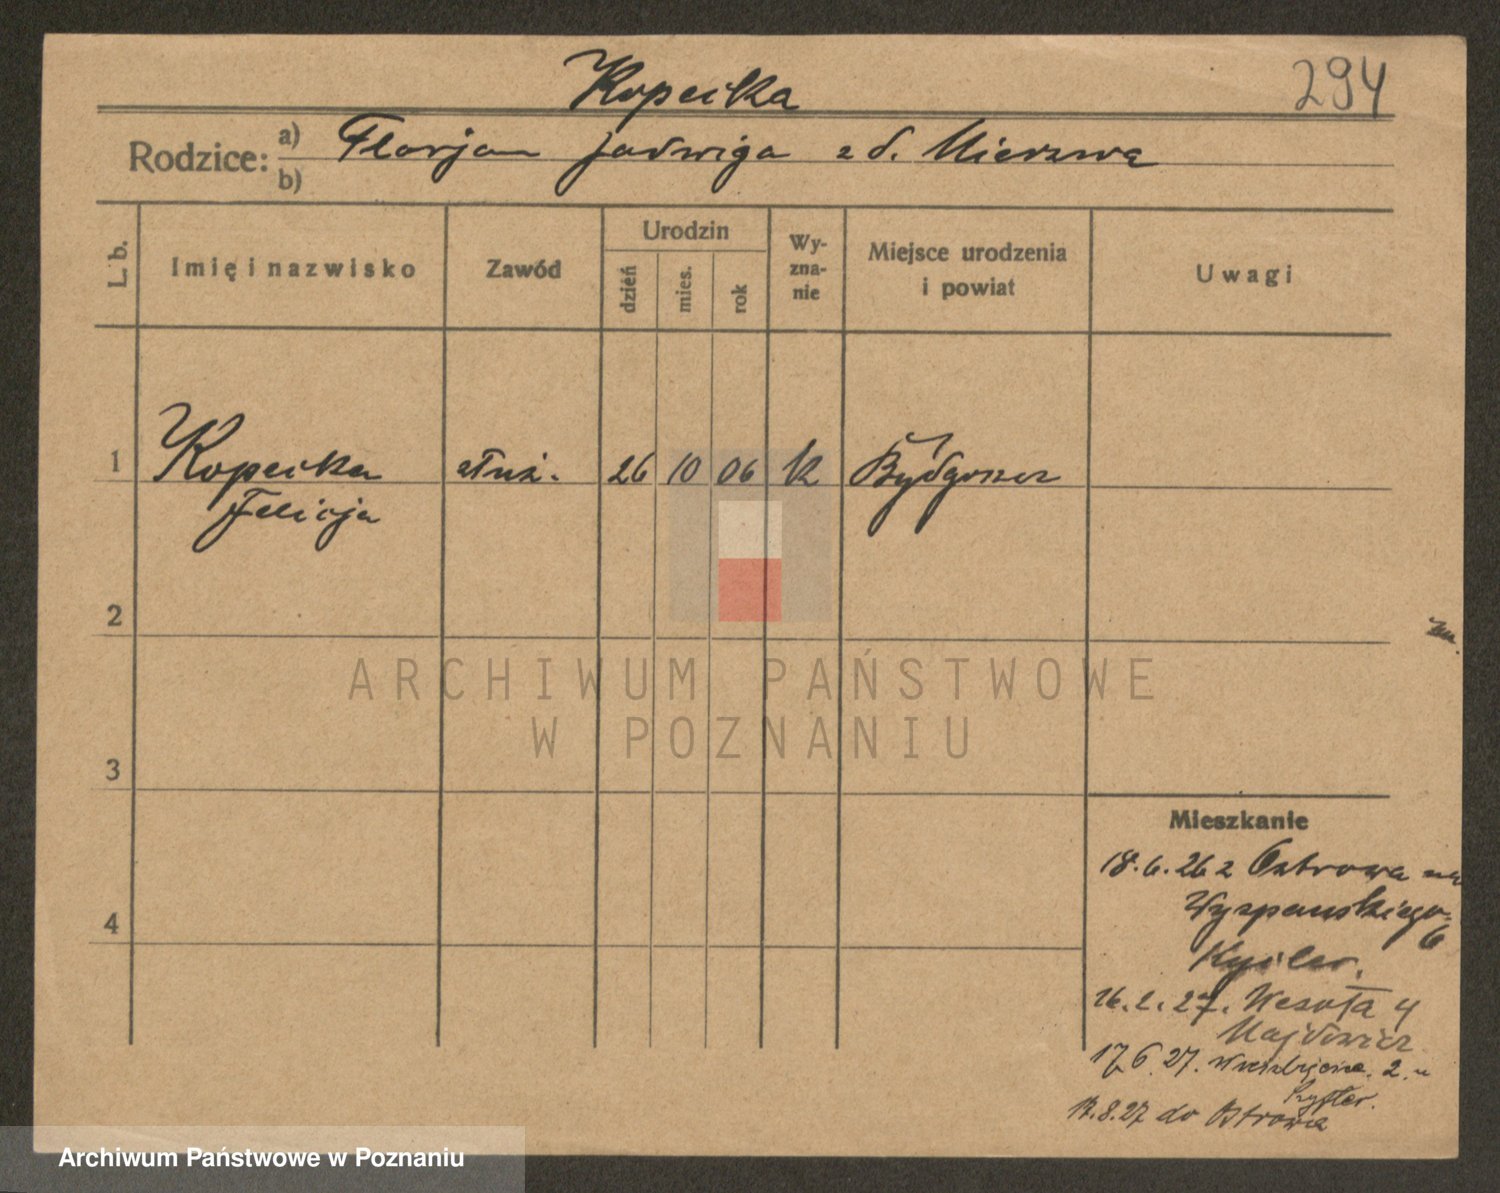 Kopecka
294
Rodzice: a) Florjan Jadwiga z d. Mierzwa
b)
L. b.
Imię i nazwisko
Zawód
Urodzin
dzień
mies.
rok
Wy-
zna-
nie
Miejsce urodzenia
i powiat
Uwagi
1 Kopecka służ. 26 10 06 k Bydgoszcz
Felicja
2
3
4
Mieszkanie
18.6.26 z Ostrowa
Wyspiańskiego
6
16.2.27. Wesoła 4
Majdowicz
17.6.27. 2
17.8.27 do Ostrowa
ARCHIWUM PAŃSTWOWE
W POZNANIU
Archiwum Państwowe w Poznaniu